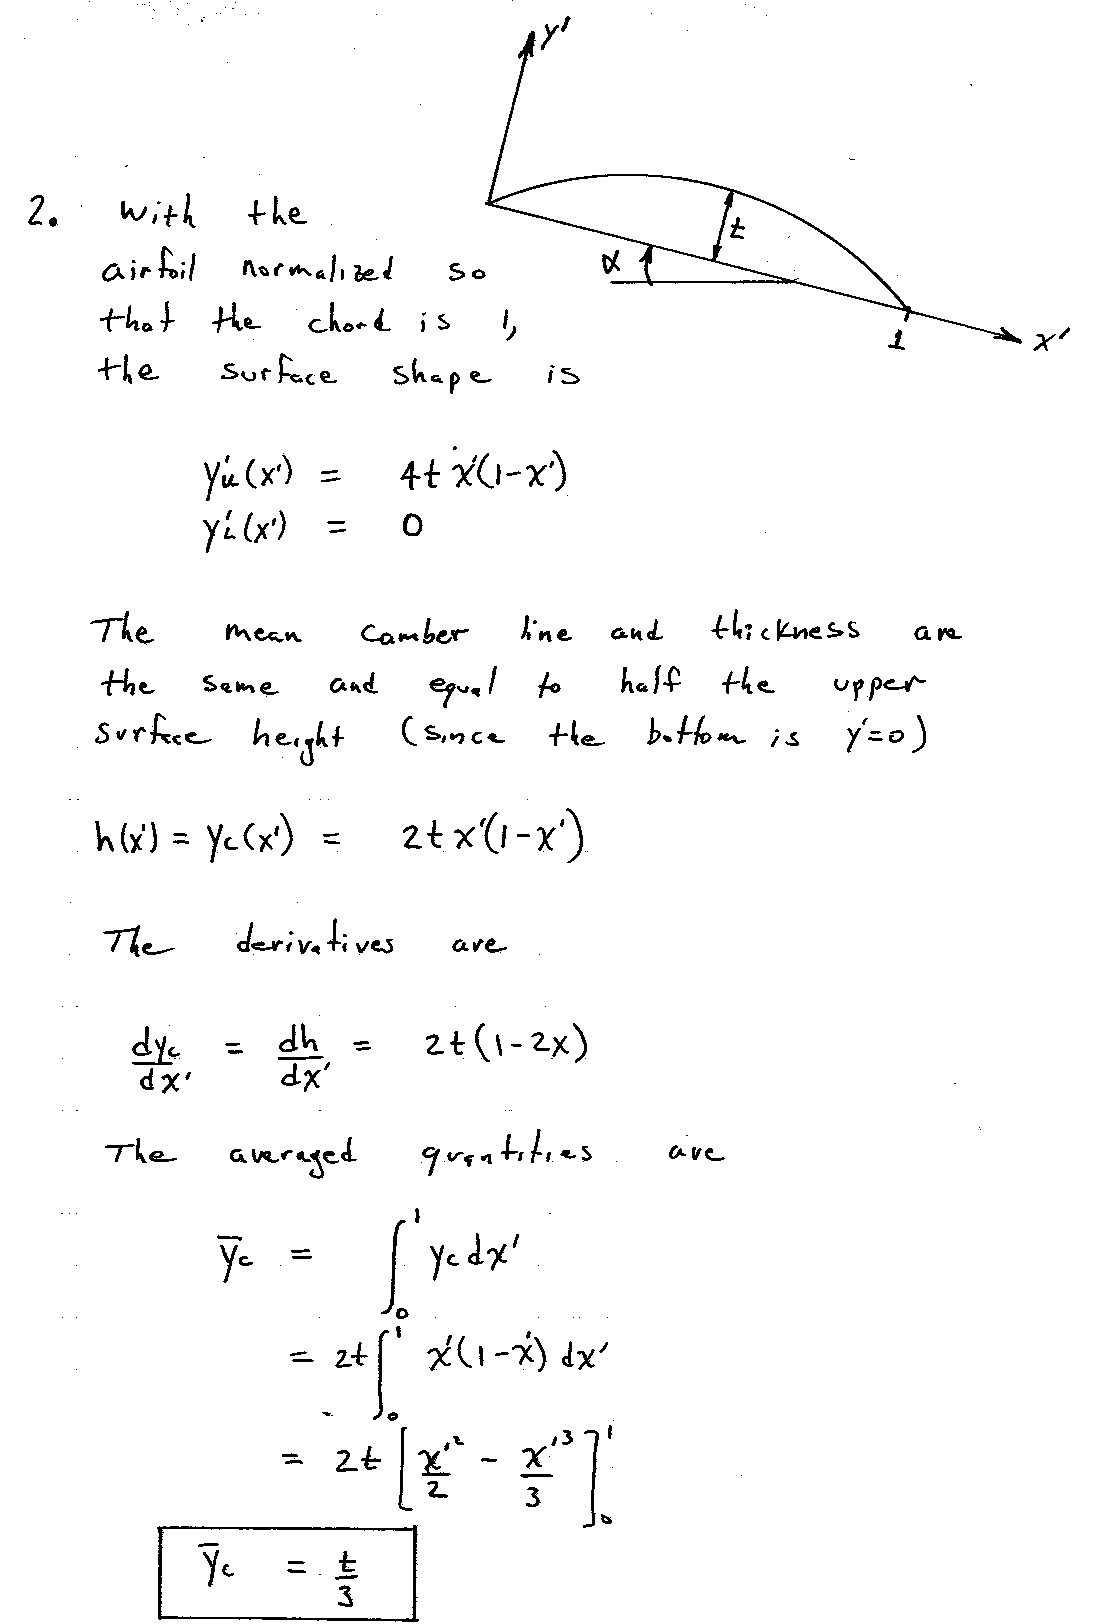 y'
2. With the
airfoil normalized so
that the chord is 1,
the surface shape is
t
α
1
x'
y'u(x') = 4t x'(1-x')
y'L(x') = 0
The mean camber line and thickness are
the same and equal to half the upper
surface height (since the bottom is y'=0)
h(x') = yc(x') = 2t x'(1-x')
The derivatives are
dyc/dx' = dh/dx' = 2t(1-2x)
The averaged quantities are
ȳc = ∫₀¹ yc dx'
= 2t ∫₀¹ x'(1-x') dx'
= 2t [x'²/2 - x'³/3]₀¹
ȳc = t/3